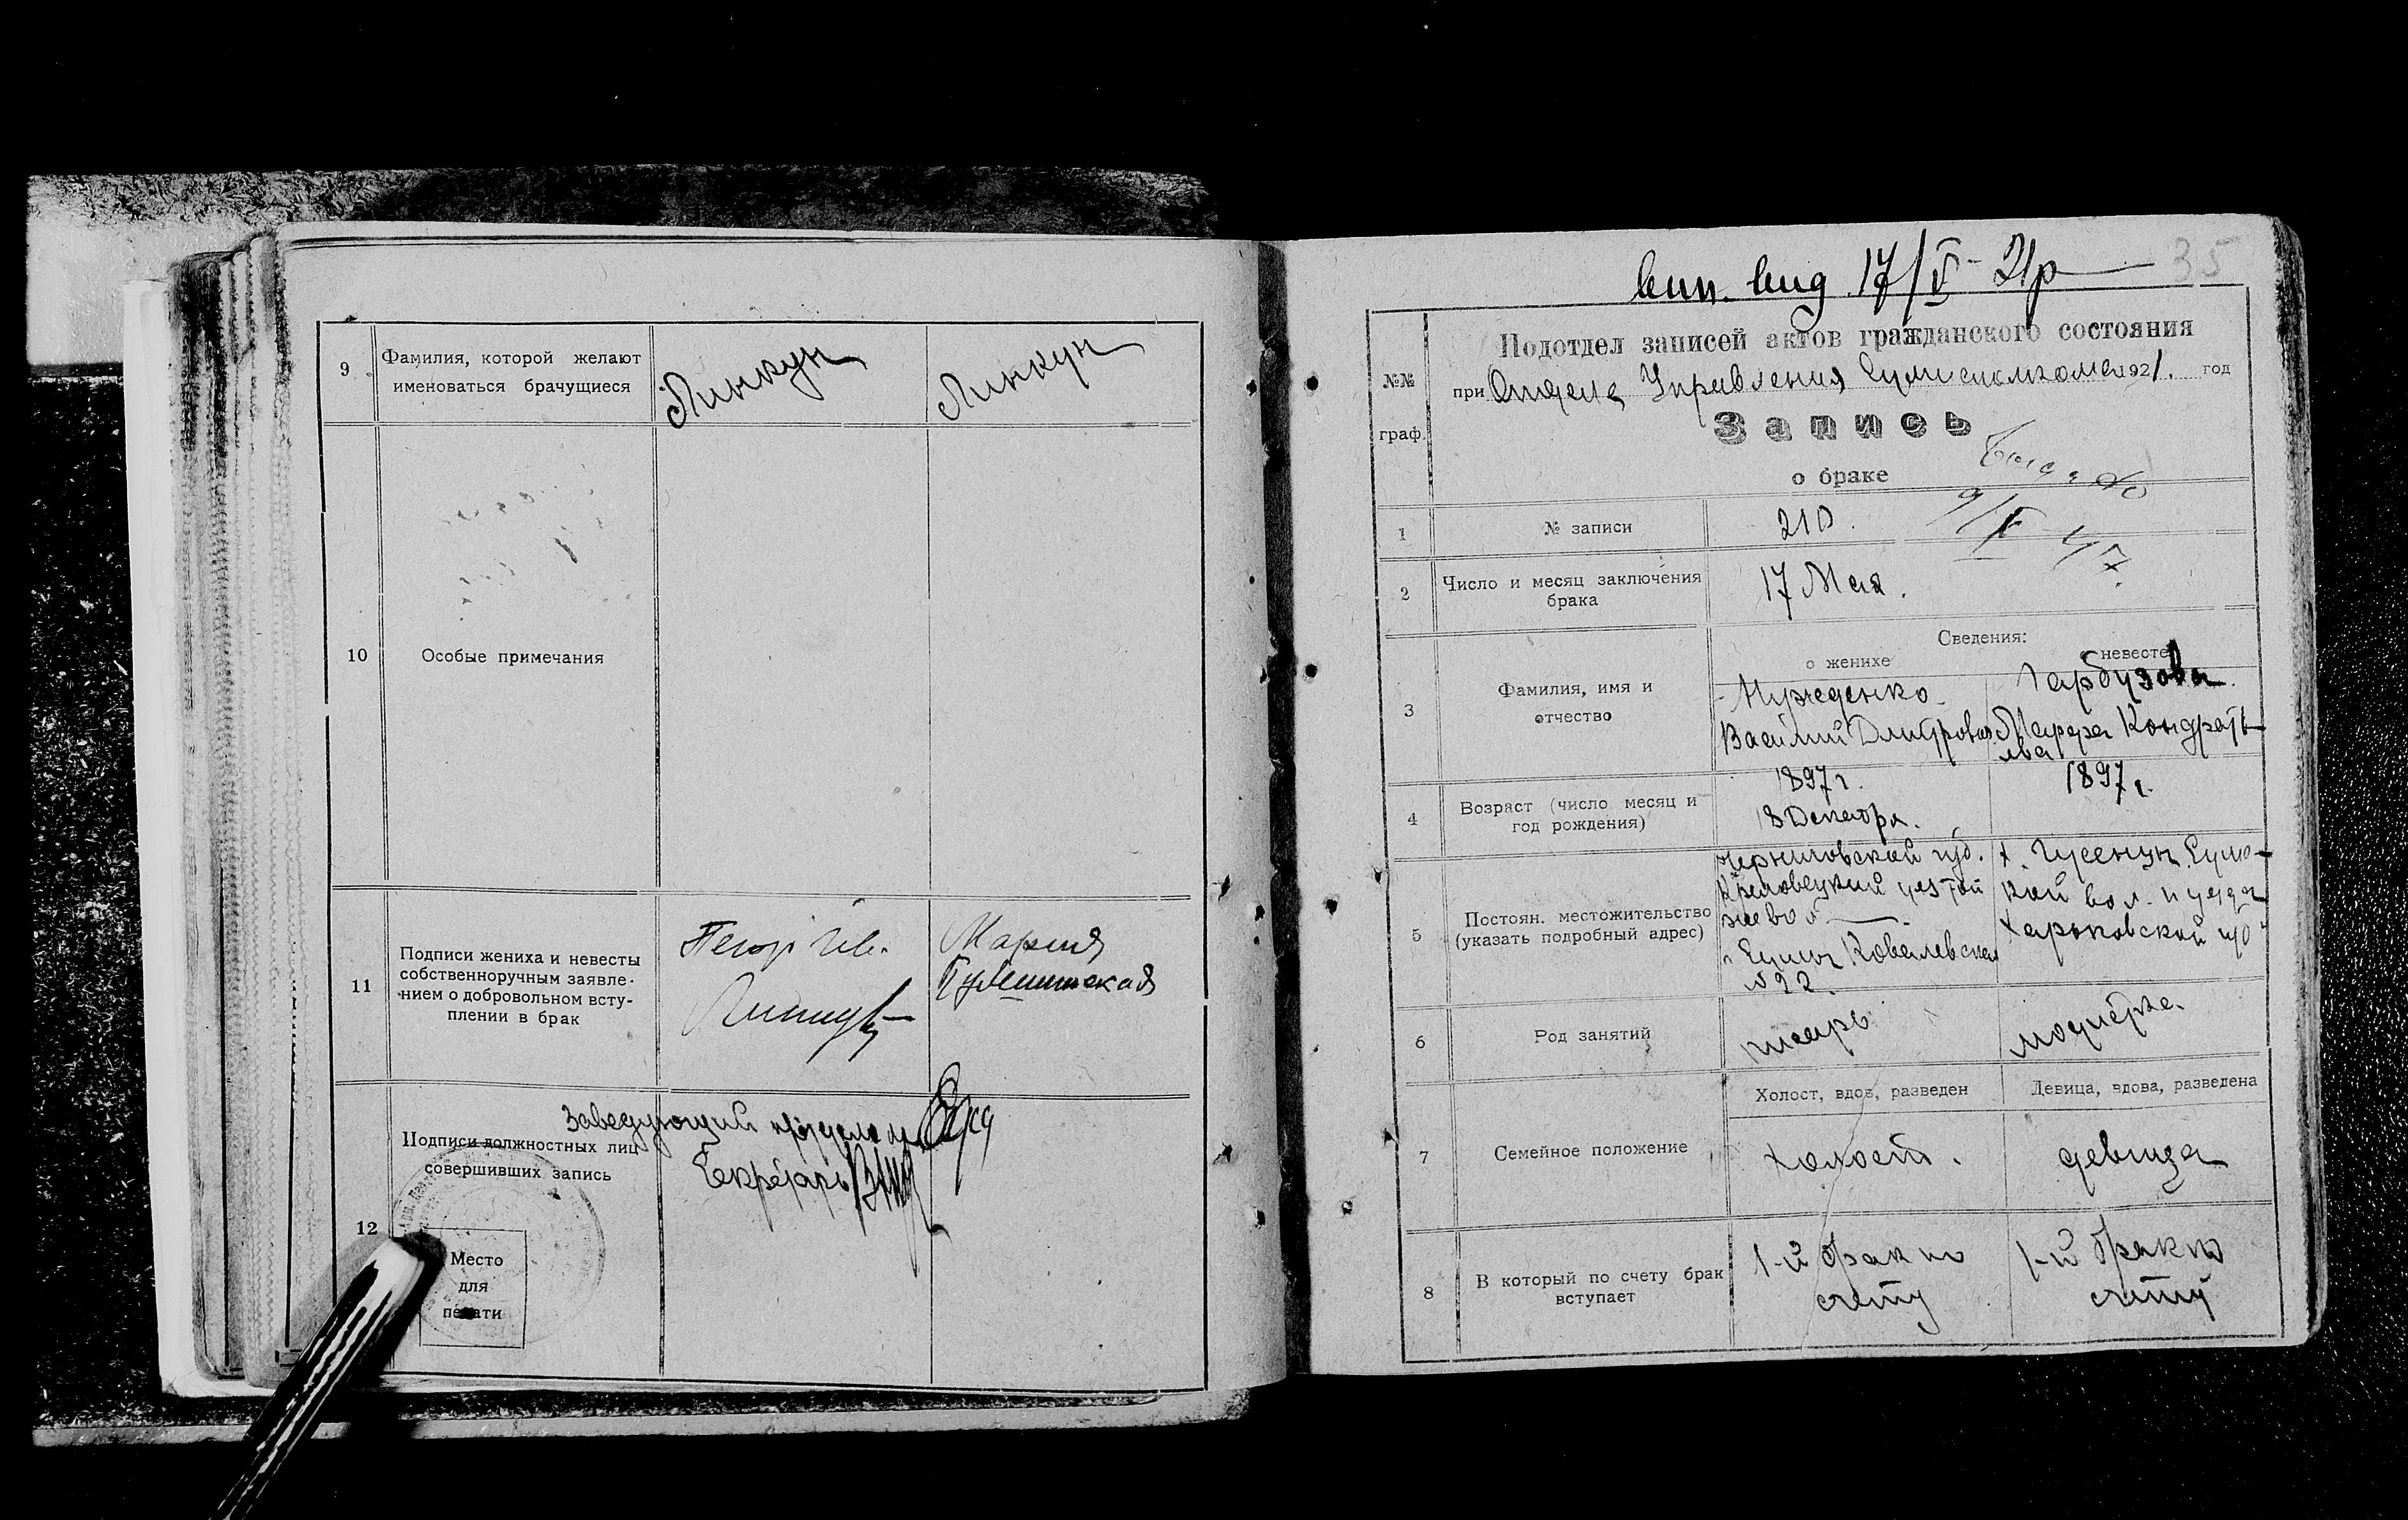 9
Фамилия, которой желают
именоваться брачущиеся
Линкун
Линкун
10
Особые примечания
11
Подписи жениха и невесты
собственноручным заявле-
нием о добровольном всту-
плении в брак
Петр Ив.
Мария
12
Подписи должностных лиц
совершивших запись
Заведующий
Секретарь
Место
для
печати
35
вип. вид 17/V 21р
№№
граф.
Подотдел записей актов гражданского состояния
при Отделе Управления 1921. год
Запись
о браке
1
№ записи
210.
2
Число и месяц заключения
брака
17 Мая.
Сведения:
о женихе
о невесте
3
Фамилия, имя и
отчество
Нужденко
Василий Дмитрович
Гарбузова
Марфа Кондрать-
ева
4
Возраст (число месяц и
год рождения)
1897 г.
18 Декабря.
1897 г.
5
Постоян. местожительство
(указать подробный адрес)
Черниговской губ.
г. Сумы Ковалевская
№ 22.
х. Гусенцы Сумс-
кой вол. и уезда
Харьковской губ
6
Род занятий
писарь
модистка.
Холост, вдов, разведен
Девица, вдова, разведена
7
Семейное положение
холост.
девица
8
В который по счету брак
вступает
1-й брак по
счету
1-й брак по
счету